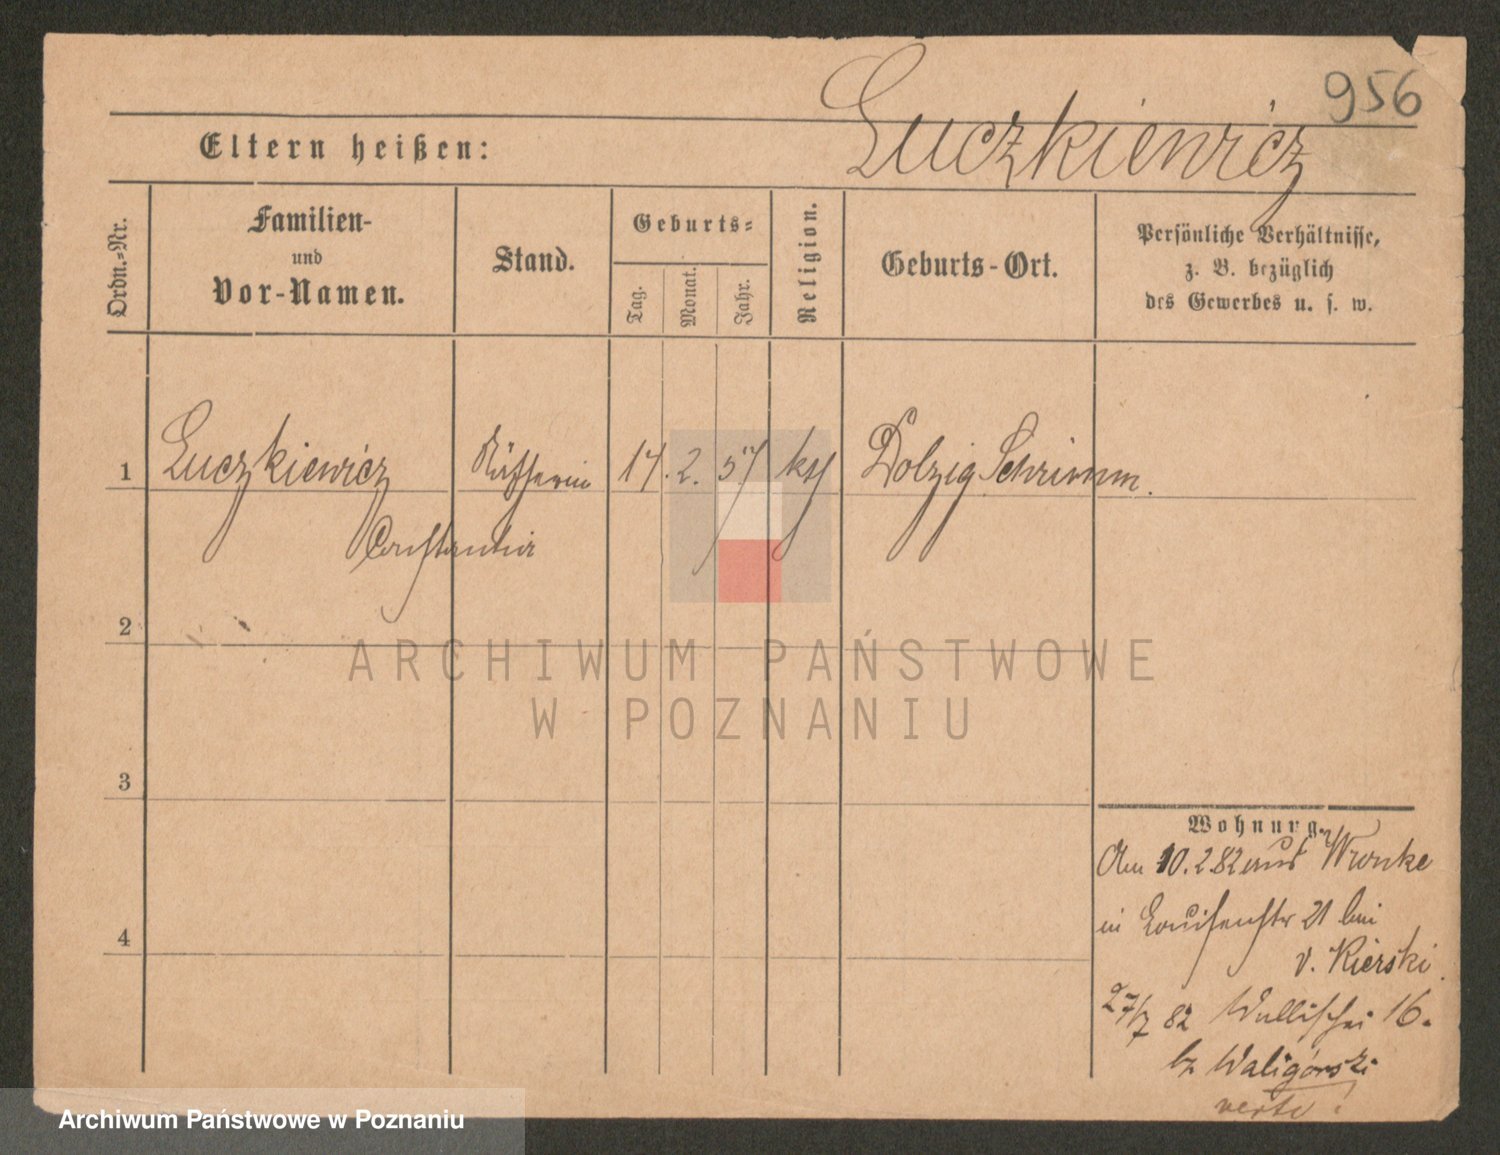 956
Luczkiewicz
Eltern heißen:
Ordn.-Nr.
Familien-
und
Vor-Namen.
Stand.
Geburts-
Tag.
Monat.
Jahr.
Religion.
Geburts-Ort.
Persönliche Verhältnisse,
z. B. bezüglich
des Gewerbes u. s. w.
1 Luczkiewicz 17. 2. 57 kth Dolzig Schrimm.
Constantia
2
3
4
Wohnung.
Am 10.2.82 aus Wronke
in Louisenstr 21 bei
v. Kierski.
27/7 82 Wallischei 16.
bz Waligórski
verte!
ARCHIWUM PAŃSTWOWE
W POZNANIU
Archiwum Państwowe w Poznaniu